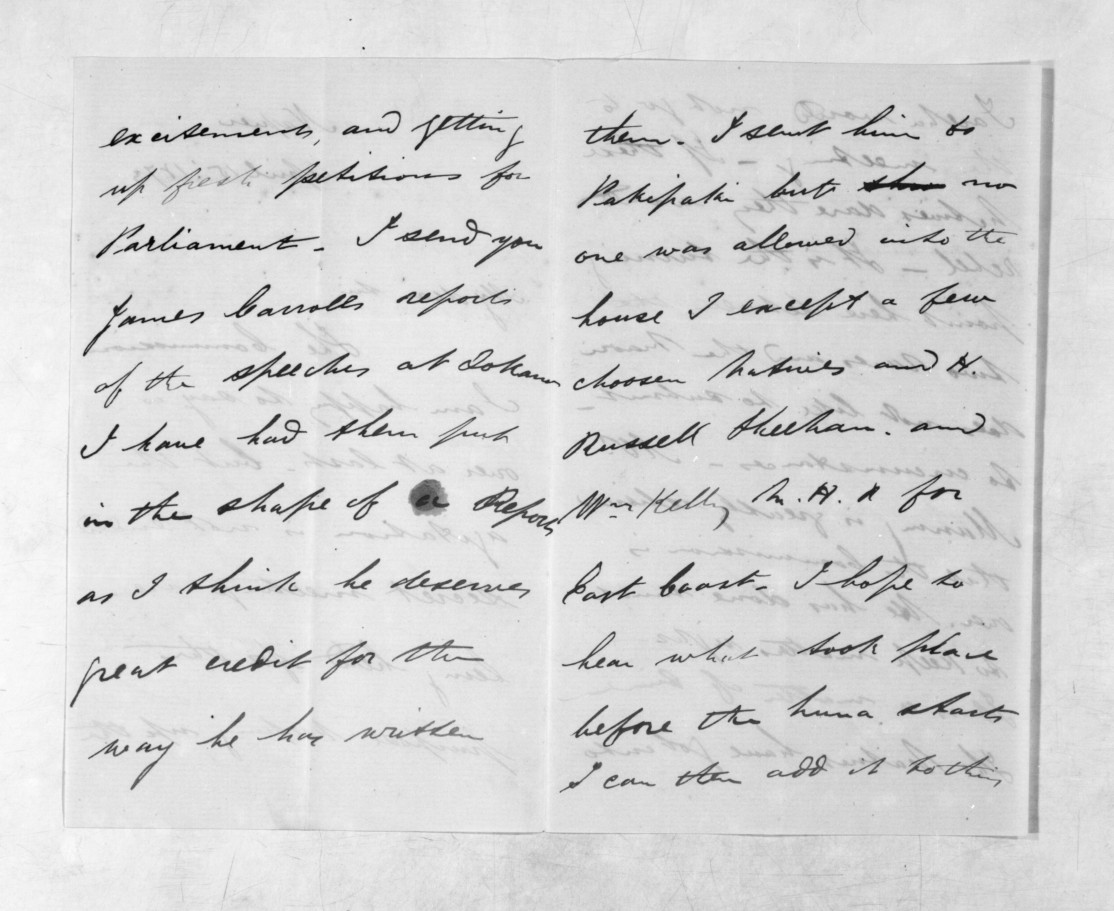 excitements, and getting
up fresh petitions for
Parliament. I send you
James Carrolls reports
of the speeches at
I have had them put
in the shape of a Report
as I think he deserves
great credit for the
way he has written
them. I sent him to
Pakipaki but no
one was allowed into the
house I except a few
choosen Natives and H.
Russell Sheehan. and
Wm Kelly M.H.R for
East Coast. I hope to
hear what took place
before the huna starts
I can then add it to this